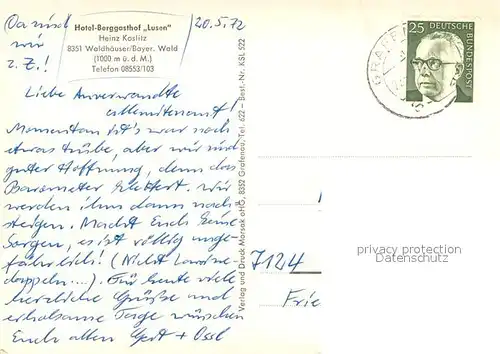 Da sind
wir
z. Z.!
Hotel-Berggasthof „Lusen"
Heinz Koslitz
8351 Waldhäuser/Bayer. Wald
(1000 m ü. d. M.)
Telefon 08553/103
20.5.72
Liebe Anverwandte
allmiteinand!
Momentan ist's zwar noch
etwas trübe, aber wir sind
guter Hoffnung, denn das
Barometer klettert. Wir
werden ihm dann nach-
steigen. Macht Euch keine
Sorgen, es ist völlig unge-
fährlich! (Nicht Lawine-
doppeln...) Für heute viele
herzliche Grüße und
erholsame Tage wünschen
Euch allen Gert +
Verlag und Druck Morsak oHG, 8352 Grafenau, Tel. 622 – Best.-Nr. KSL 522
GRAFEN
25
DEUTSCHE
BUNDESPOST
7124
Frie
privacy protection
Datenschutz